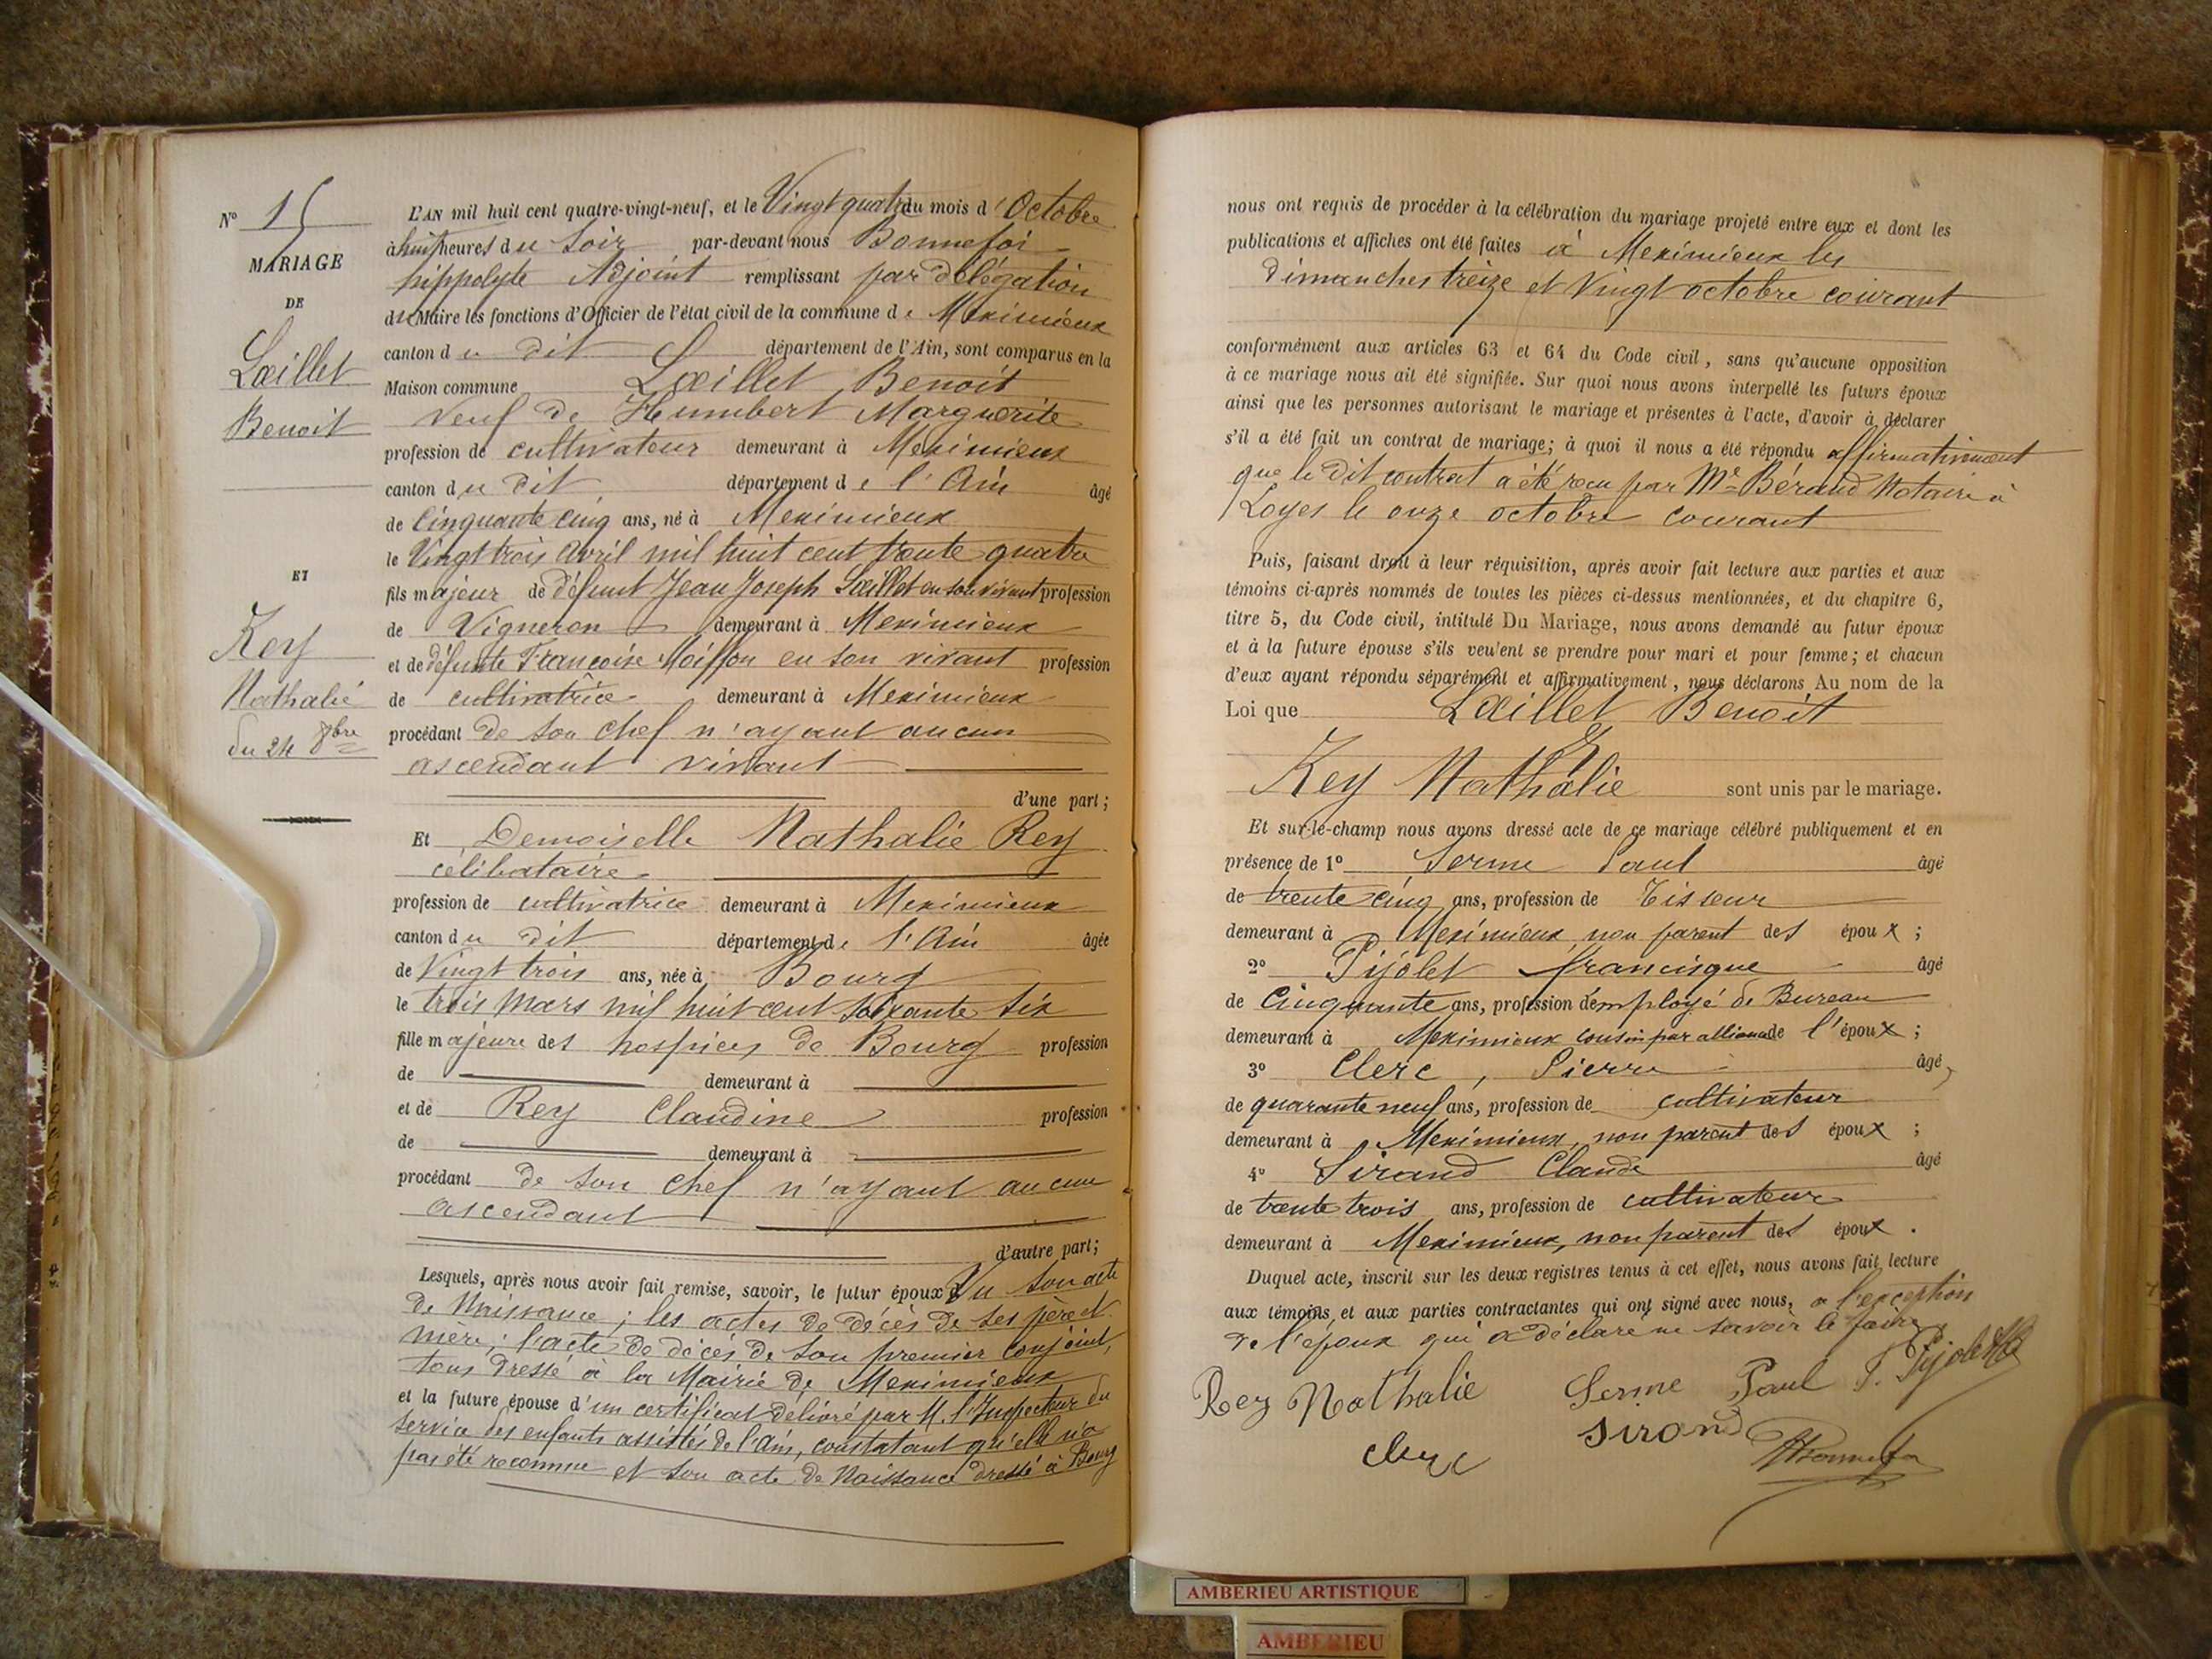 N° 15
MARIAGE
DE
Lœillet
Benoit
ET
Rey
Nathalie
du 24 8bre
L'AN mil huit cent quatre-vingt-neuf, et le Vingt quatre du mois d'Octobre
à huit heures du Soir par-devant nous Bonnefoi
hippolyte Adjoint remplissant par délégation
du Maire les fonctions d'Officier de l'état civil de la commune de Meximieux
canton du dit département de l'Ain, sont comparus en la
Maison commune Lœillet Benoit
veuf de Humbert Marguerite
profession de cultivateur demeurant à Meximieux
canton du dit département de l'Ain âgé
de Cinquante cinq ans, né à Meximieux
le Vingt trois Avril mil huit cent trente quatre
fils majeur de défunt Jean Joseph Lœillet en son vivant profession
de Vigneron demeurant à Meximieux
et de défunte Françoise Moiffon en son vivant profession
de cultivatrice demeurant à Meximieux
procédant de son chef n'ayant aucun
ascendant vivant
d'une part;
Et Demoiselle Nathalie Rey
célibataire
profession de cultivatrice demeurant à Meximieux
canton du dit département de l'Ain âgée
de Vingt trois ans, née à Bourg
le trois Mars mil huit cent soixante six
fille majeure des hospices de Bourg profession
de demeurant à
et de Rey Claudine profession
de demeurant à
procédant de son chef n'ayant aucun
ascendant
d'autre part;
Lesquels, après nous avoir fait remise, savoir, le futur époux Vu son acte
de Naissance; les actes de décès de ses père et
mère; l'acte de décès de son premier conjoint,
tous dressé à la Mairie de Meximieux
et la future épouse d'un certificat délivré par M. l'Inspecteur du
service des enfants assistés de l'Ain, constatant qu'elle n'a
pas été reconnue et son acte de Naissance dressé à Bourg
nous ont requis de procéder à la célébration du mariage projeté entre eux et dont les
publications et affiches ont été faites à Meximieux les
dimanches treize et Vingt octobre courant
conformément aux articles 63 et 64 du Code civil, sans qu'aucune opposition
à ce mariage nous ait été signifiée. Sur quoi nous avons interpellé les futurs époux
ainsi que les personnes autorisant le mariage et présentes à l'acte, d'avoir à déclarer
s'il a été fait un contrat de mariage; à quoi il nous a été répondu affirmativement
que le dit contrat a été reçu par Me Bérand Notaire à
Loyes le onze octobre courant
Puis, faisant droit à leur réquisition, après avoir fait lecture aux parties et aux
témoins ci-après nommés de toutes les pièces ci-dessus mentionnées, et du chapitre 6,
titre 5, du Code civil, intitulé Du Mariage, nous avons demandé au futur époux
et à la future épouse s'ils veulent se prendre pour mari et pour femme; et chacun
d'eux ayant répondu séparément et affirmativement, nous déclarons Au nom de la
Loi que Lœillet Benoit
Rey Nathalie sont unis par le mariage.
Et sur-le-champ nous avons dressé acte de ce mariage célébré publiquement et en
présence de 1° Serme Paul âgé
de trente cinq ans, profession de Tisseur
demeurant à Meximieux non parent des époux;
2° Pijolet francisque âgé
de Cinquante ans, profession d'employé de Bureau
demeurant à Meximieux cousin par alliance de l'époux;
3° Clerc, Pierre âgé,
de quarante neuf ans, profession de cultivateur
demeurant à Meximieux, non parent des époux;
4° Sirand Claude âgé
de trente trois ans, profession de cultivateur
demeurant à Meximieux, non parent des époux.
Duquel acte, inscrit sur les deux registres tenus à cet effet, nous avons fait lecture
aux témoins, et aux parties contractantes qui ont signé avec nous, a l'exception
de l'époux qui a déclaré ne savoir le faire,
Rey Nathalie Serme Paul F. Pijolet
Clerc Sirand HBonnefoi
AMBERIEU ARTISTIQUE
AMBERIEU